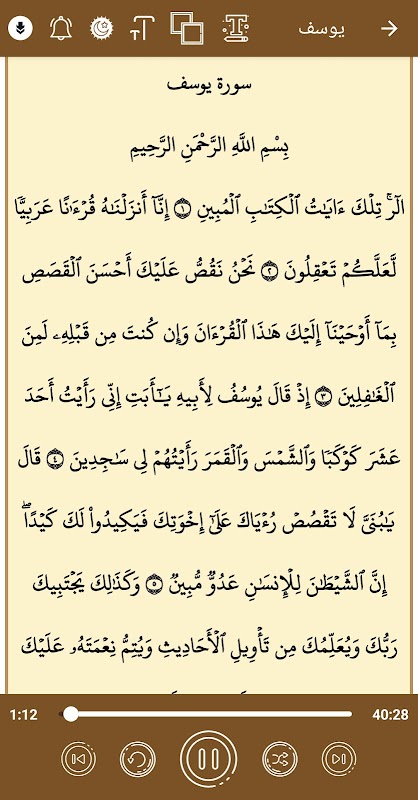 يوسف
سورة يوسف
بِسْمِ اللَّهِ الرَّحْمَنِ الرَّحِيمِ
الٓرۚ تِلْكَ ءَايَٰتُ ٱلْكِتَٰبِ ٱلْمُبِينِ ١ إِنَّآ أَنزَلْنَٰهُ قُرْءَٰنًا عَرَبِيًّا
لَّعَلَّكُمْ تَعْقِلُونَ ٢ نَحْنُ نَقُصُّ عَلَيْكَ أَحْسَنَ ٱلْقَصَصِ
بِمَآ أَوْحَيْنَآ إِلَيْكَ هَٰذَا ٱلْقُرْءَانَ وَإِن كُنتَ مِن قَبْلِهِۦ لَمِنَ
ٱلْغَٰفِلِينَ ٣ إِذْ قَالَ يُوسُفُ لِأَبِيهِ يَٰٓأَبَتِ إِنِّي رَأَيْتُ أَحَدَ
عَشَرَ كَوْكَبًا وَٱلشَّمْسَ وَٱلْقَمَرَ رَأَيْتُهُمْ لِي سَٰجِدِينَ ٤ قَالَ
يَٰبُنَيَّ لَا تَقْصُصْ رُءْيَاكَ عَلَىٰٓ إِخْوَتِكَ فَيَكِيدُوا۟ لَكَ كَيْدًاۖ
إِنَّ ٱلشَّيْطَٰنَ لِلْإِنسَٰنِ عَدُوٌّ مُّبِينٌ ٥ وَكَذَٰلِكَ يَجْتَبِيكَ
رَبُّكَ وَيُعَلِّمُكَ مِن تَأْوِيلِ ٱلْأَحَادِيثِ وَيُتِمُّ نِعْمَتَهُۥ عَلَيْكَ
1:12
40:28